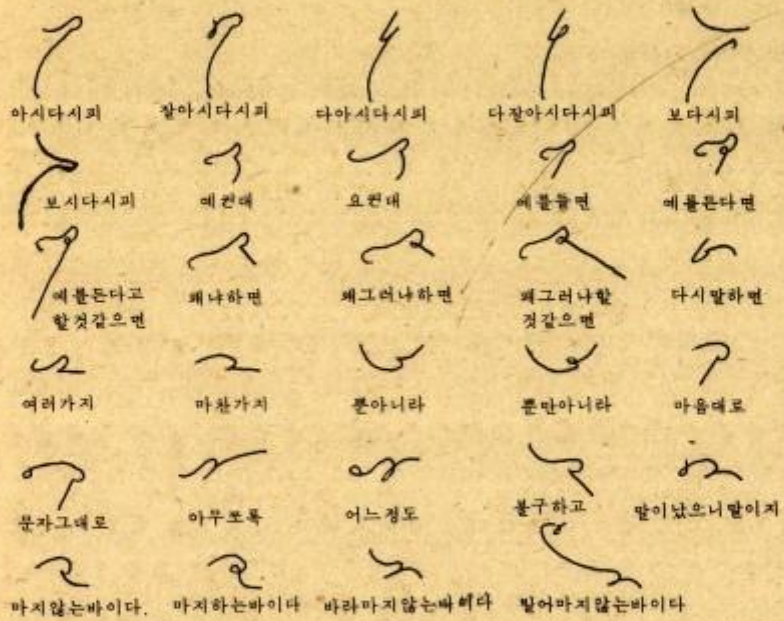 아시다시피 잘아시다시피 다아시다시피 다잘아시다시피 보다시피
보시다시피 예컨대 요컨대 예를들면 예를든다면
예를든다고 왜냐하면 왜그러냐하면 왜그러냐할 다시말하면
할것같으면 것같으면
여러가지 마찬가지 뿐아니라 뿐만아니라 마음대로
문자그대로 아무쪼록 어느정도 불구하고 말이났으니말이지
마지않는바이다. 마지하는바이다 바라마지않는바이다 빌어마지않는바이다